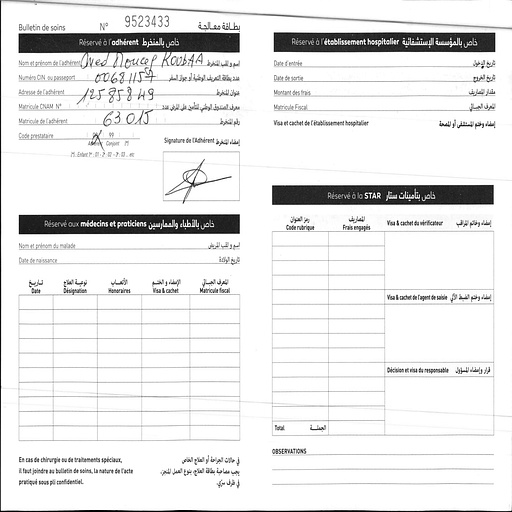 Bulletin de soins N° 9523433 بطاقة معالجة
Réservé à l'adhérent خاص بالمنخرط
Nom et prénom de l'adhérent إسم و لقب المنخرط
Numéro CIN ou passeport 00681157 عدد بطاقة التعريف الوطنية أو جواز السفر
Adresse de l'adhérent 12585849 عنوان المنخرط
Matricule CNAM N° معرف الصندوق الوطني للتأمين على المرض عدد
Matricule de l'adhérent 63015 رقم المنخرط
Code prestataire 99
Conjoint
Signature de l'Adhérent إمضاء المنخرط
Réservé aux médecins et praticiens خاص بالأطباء والممارسين
Nom et prénom du malade إسم و لقب المريض
Date de naissance تاريخ الولادة
تاريخ نوعية العلاج الأتعاب الإمضاء و الختم المعرف الجبائي
Date Désignation Honoraires Visa & cachet Matricule fiscal
En cas de chirurgie ou de traitements spéciaux,
il faut joindre au bulletin de soins, la nature de l'acte
pratiqué sous pli confidentiel.
في حالات الجراحة أو العلاج الخاص
يجب مصاحبة بطاقة العلاج، بنوع العمل المنجز،
في ظرف سري.
Réservé à l'établissement hospitalier خاص بالمؤسسة الإستشفائية
Date d'entrée تاريخ الدخول
Date de sortie تاريخ الخروج
Montant des frais مقدار المصاريف
Matricule Fiscal المعرف الجبائي
Visa et cachet de l'établissement hospitalier إمضاء وختم المستشفى أو المصحة
Réservé à la STAR خاص بتأمينات ستار
رمز العنوان المصاريف
Code rubrique Frais engagés
Visa & cachet du vérificateur إمضاء وخاتم المراقب
Visa & cachet de l'agent de saisie إمضاء وختم الضبط الآلي
Décision et visa du responsable قرار وإمضاء المسؤول
Total الجملة
OBSERVATIONS